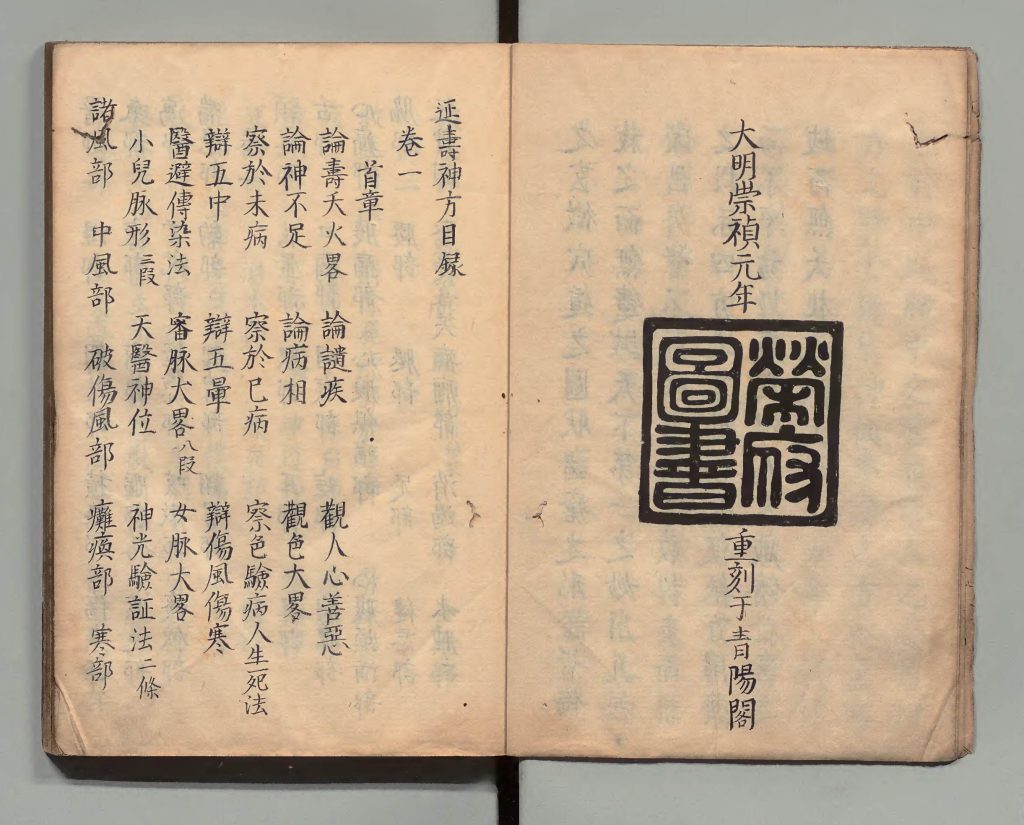 大明崇禎元年
榮府
圖書
重刻于青陽閣
延壽神方目録
卷一
首章
論壽夭火畧 論譴疾 觀人心善惡
論神不足 論病相 觀色大畧
察於未病 察於巳病 察色驗病人生死法
辯五中 辯五暈 辯傷風傷寒
醫避傳染法 審脉大畧八段 女脉大畧
小兒脉形二段 天醫神位 神光驗証法二條
諸風部 中風部 破傷風部 癱瘓部 寒部